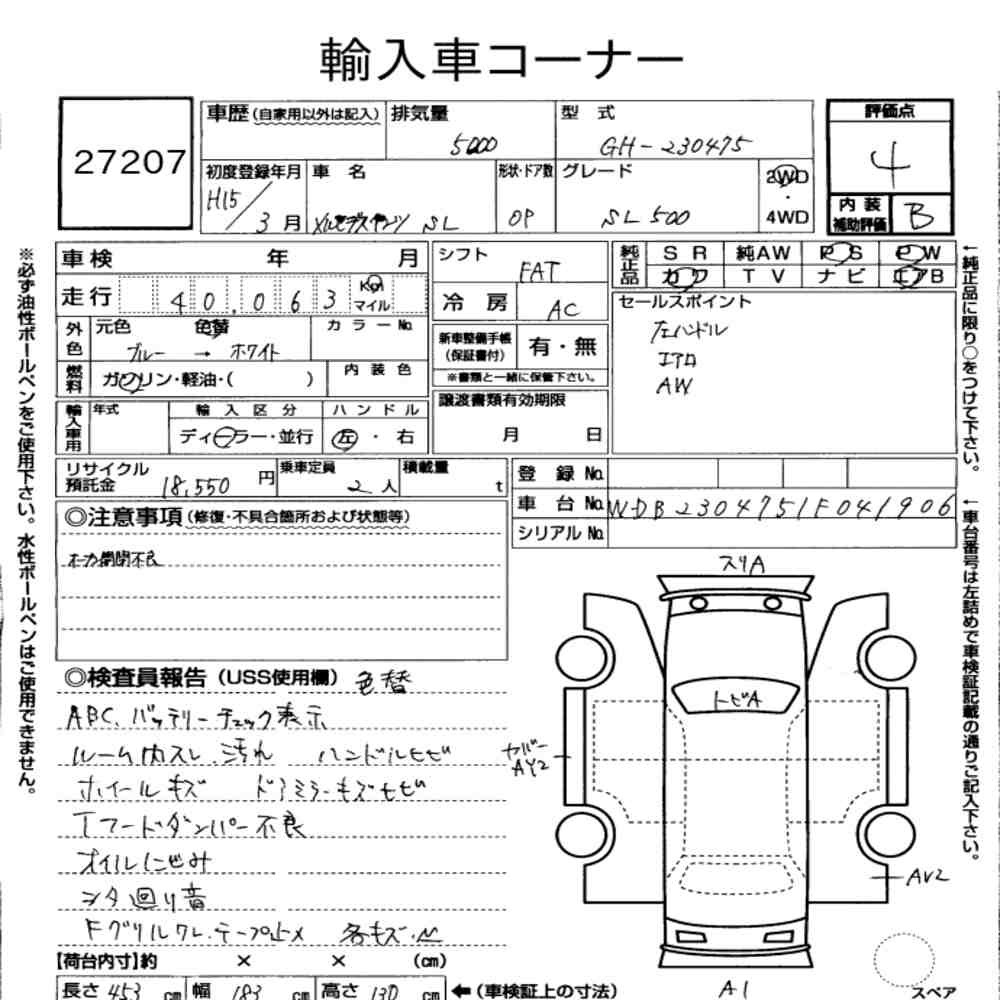 輸入車コーナー
27207
車歴(自家用以外は記入)
排気量
5000
型 式
GH-230475
評価点
4
初度登録年月
H15/3月
車 名
メルセデスベンツ SL
形状・ドア数
OP
グレード
SL500
2WD
・
4WD
内装
補助評価
B
車検 年 月
走行 40,063 Km マイル
シフト
FAT
冷 房
AC
純正品
SR 純AW PS PW
カワ TV ナビ エアB
セールスポイント
左ハンドル
エアロ
AW
外色
元色 色替
ブルー → ホワイト
カラーNo.
燃料
ガソリン・軽油・( )
内装色
新車整備手帳
(保証書付)
有・無
※書類と一緒に保管下さい。
輸入車用
年式
輸入区分
ディーラー・並行
ハンドル
左・右
譲渡書類有効期限
月 日
リサイクル
預託金
18,550円
乗車定員
2人
積載量
t
登録No.
車台No.
WDB2304751F041906
シリアルNo.
◎注意事項(修復・不具合箇所および状態等)
オーカ開閉不良
◎検査員報告(USS使用欄) 色替
ABC、バッテリーチェック表示
ルーム内スレ、汚れ ハンドルヒビ
ホイールキズ ドアミラーキズヒビ
Tフードダンパー不良
オイルにじみ
シタ回り音
Fグリルワレ、テープ止メ 各キズ・凹
【荷台内寸】約 × × (cm)
長さ 453 cm 幅 183 cm 高さ 130 cm ←(車検証上の寸法)
スリA
トビA
カバー
AY2
AV2
A1
スペア
※必ず油性ボールペンをご使用下さい。水性ボールペンはご使用できません。
←純正品に限り○をつけて下さい。
←車台番号は左詰めで車検証記載の通りご記入下さい。